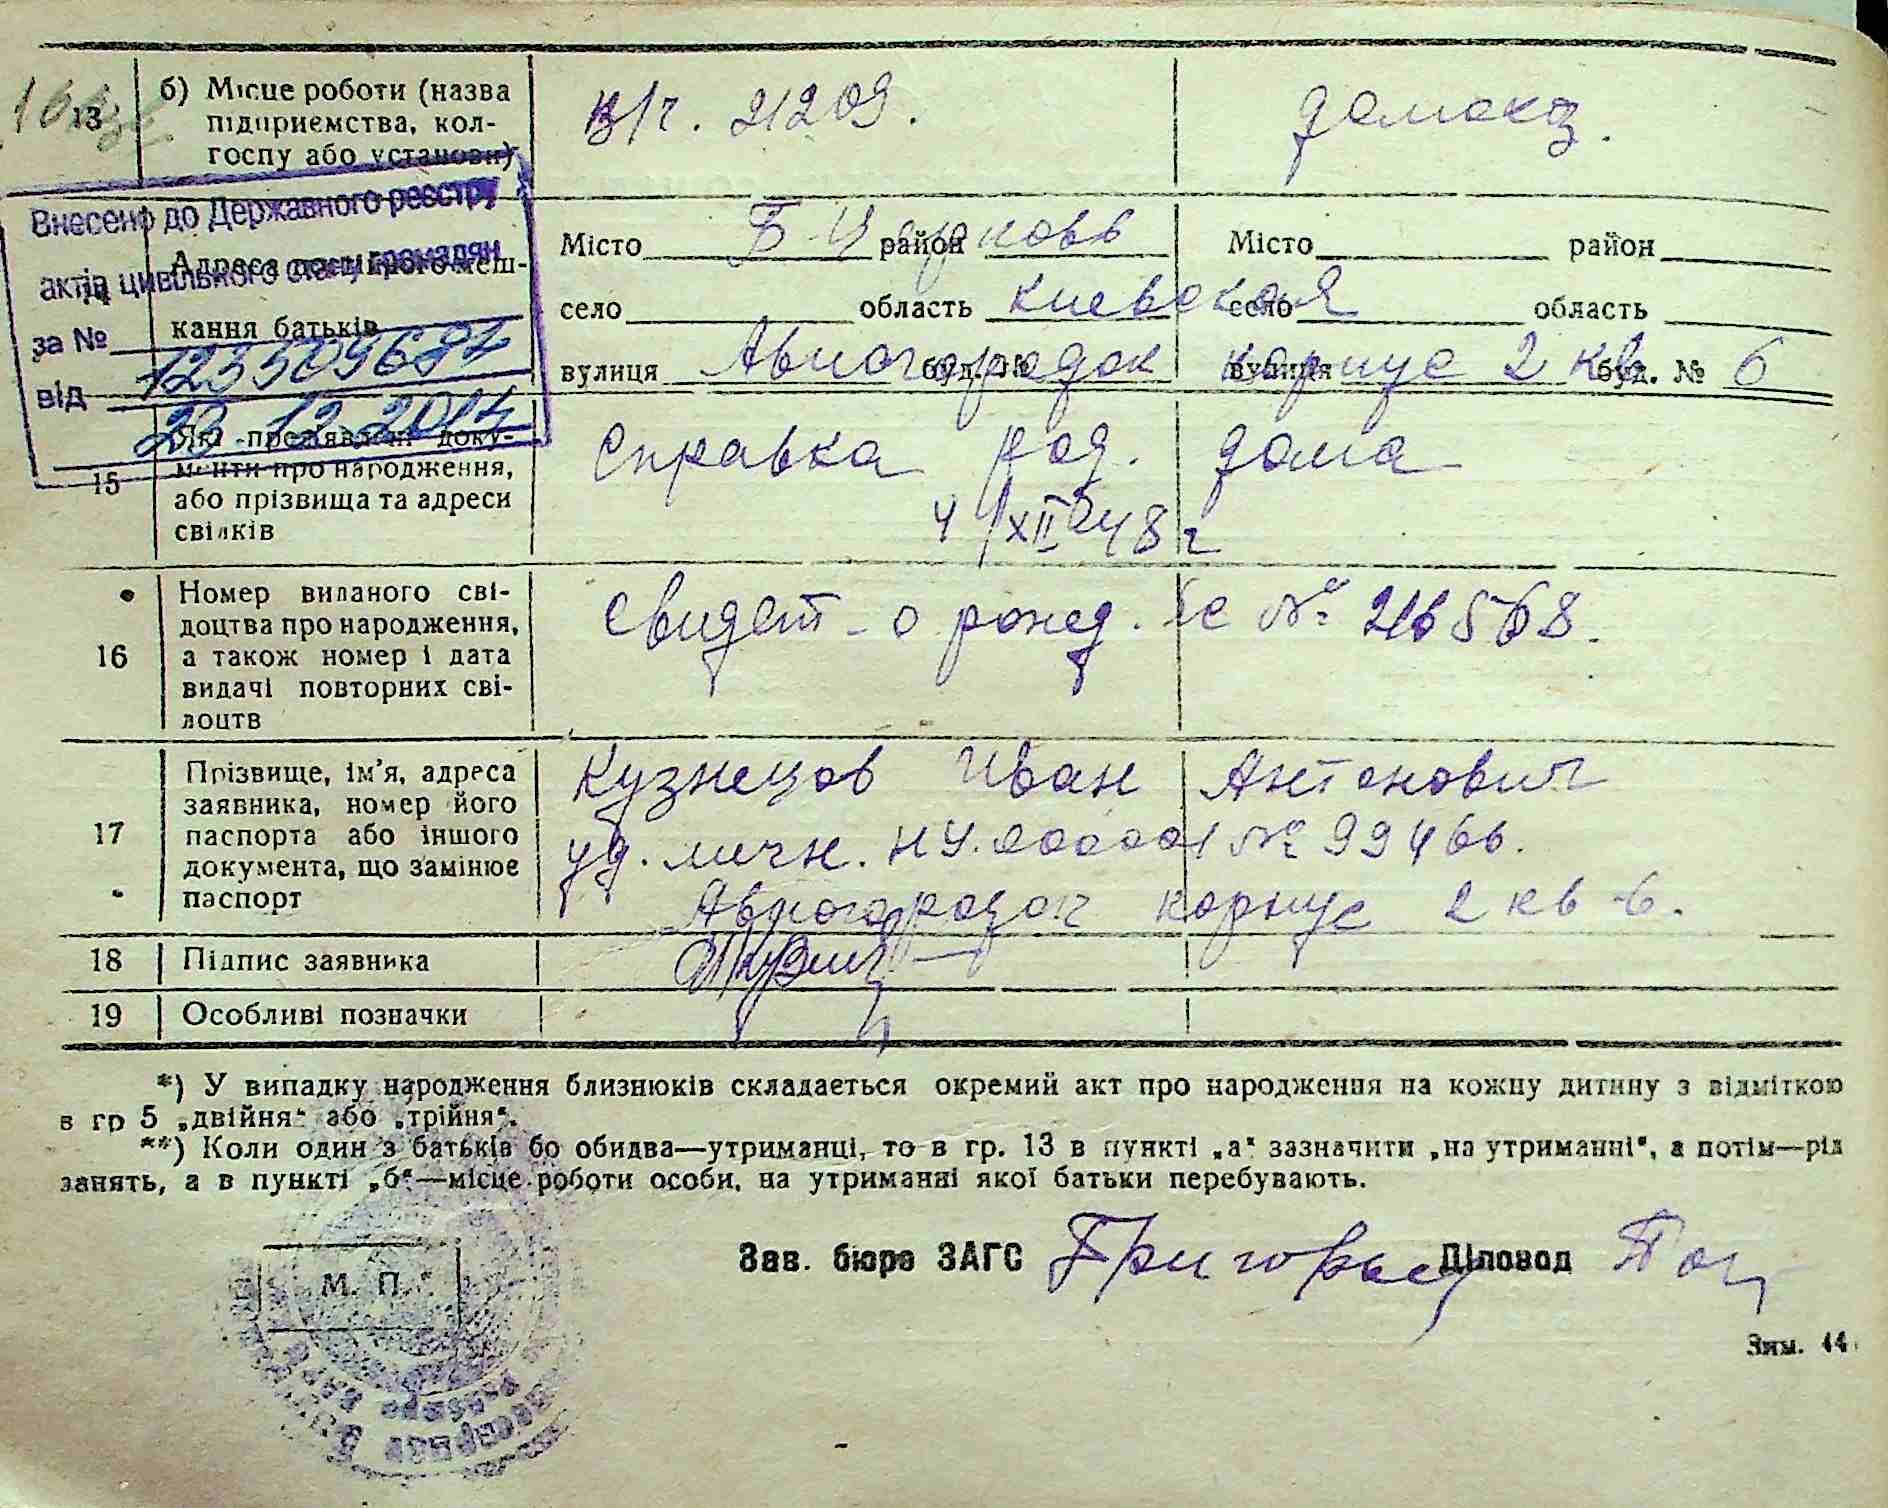 13 б) Місце роботи (назва підприємства, колгоспу або установи)
в/ч. 21209.
домохоз.
Внесено до Державного реєстру
актів цивільного стану громадян
за №
від 23.12.2014
14 Адреса постійного мешкання батьків
Місто Б-Церковь район
село область Киевская
вулиця Авиогородок буд. № корпус 2 кв. 6
Місто район
село область
вулиця буд. №
15 Які пред'явлені документи про народження, або прізвища та адреси свідків
Справка род. дома
4/XII 48 г
16 Номер виданого свідоцтва про народження, а також номер і дата видачі повторних свідоцтв
Свидет-о рожд. № 216568.
17 Прізвище, ім'я, адреса заявника, номер його паспорта або іншого документа, що замінює паспорт
Кузнецов Иван Антонович
уд. личн. № 99466.
Авиогородок корпус 2 кв-6.
18 Підпис заявника
19 Особливі позначки
*) У випадку народження близнюків складається окремий акт про народження на кожну дитину з відміткою
в гр 5 „двійня“ або „трійня“.
**) Коли один з батьків бо обидва—утриманці, то в гр. 13 в пункті „а“ зазначити „на утриманні“, а потім—рід
занять, а в пункті „б“—місце роботи особи, на утриманні якої батьки перебувають.
Зав. бюро ЗАГС Діловод
М. П.
Зям. 44